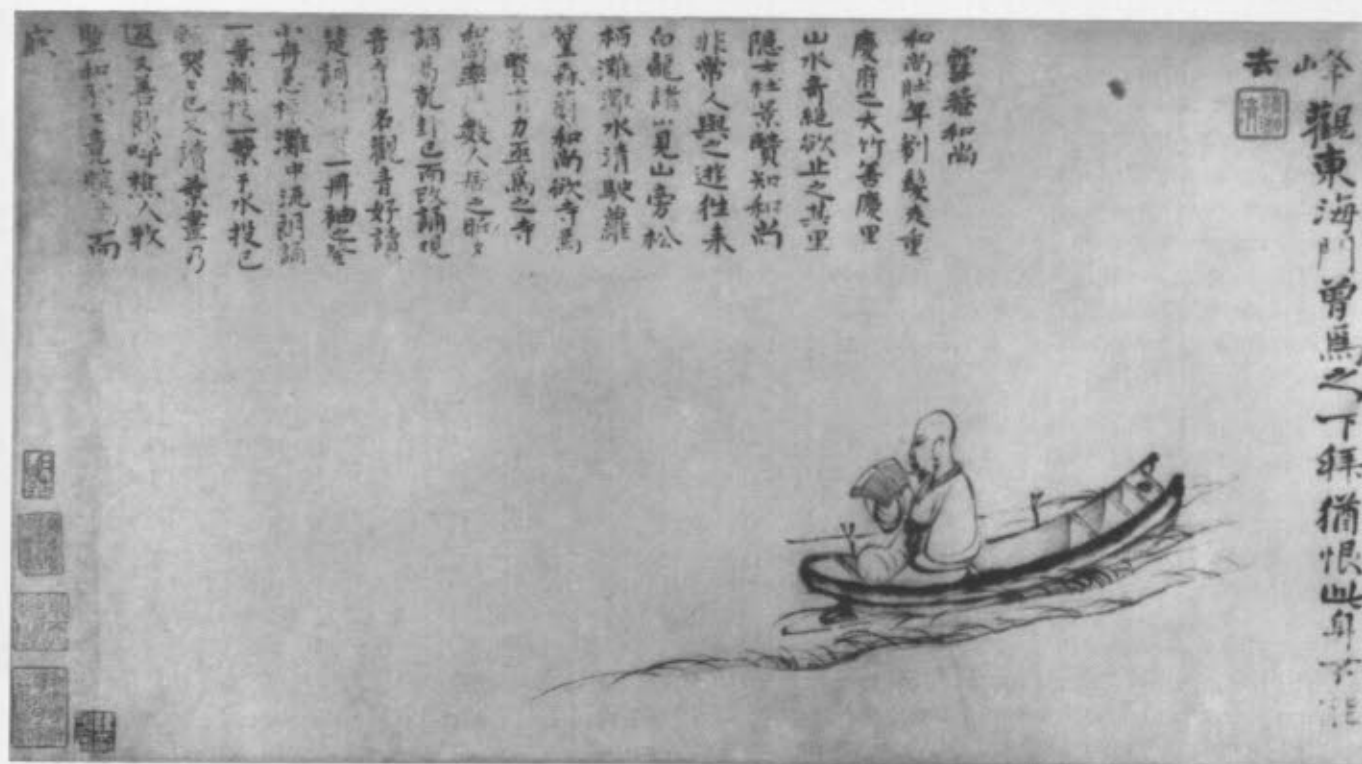 峰觀東海門曾爲之下拜猶恨此身不能
去
雪菴和尚
和尚壯年剃髮走重
慶府之大竹善慶里
山水奇絕欲止之其里
隱士杜景賢知和尚
非常人與之遊往来
白龍諸山見山旁松
柯灘灘水清駛蘿
篁森蔚和尚欲寺焉
賢有力亟爲之寺
和尚率數人居之昕夕
誦易乾卦已而改誦觀
音寺因名觀音好讀
楚詞一冊袖之登
小舟急棹灘中流朗誦
一葉輒投一葉于水投已
哭已又讀葉盡乃
返又善飲呼樵人牧
豎和歌竟瞑而
寐